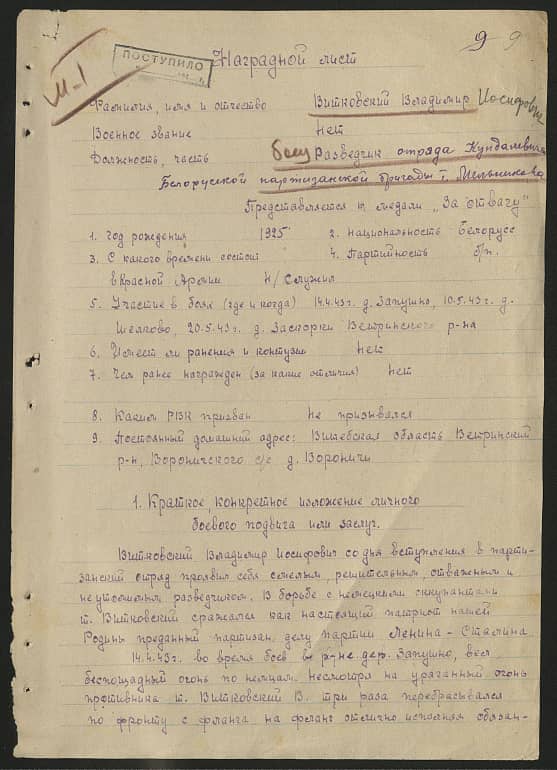 9 9
ПОСТУПИЛО
М-1
Наградной лист
Фамилия, имя и отчество Витковский Владимир Иосифович
Военное звание Нет
Должность, часть боец Разведчик отряда Кундалевича
Белорусской партизанской бригады т. Мельникова
Представляется к медали „За отвагу"
1. Год рождения 1925 2. Национальность Белорусс
3. С какого времени состоит 4. Партийность б/п.
в Красной Армии н/служил
5. Участие в боях (где и когда) 14.4.43г. д. Запушно, 10.5.43г. д.
Шелково, 20.5.43г. д. Заскорки Ветринского р-на
6. Имеет ли ранения и контузии Нет
7. Чем ранее награжден (за какие отличия) Нет
8. Каким РВК призван Не призывался
9. Постоянный домашний адрес: Витебская область Ветринский
р-н, Вороничского с/с д. Вороничи
1. Краткое, конкретное изложение личного
боевого подвига или заслуг.
Витковский Владимир Иосифович со дня вступления в парти-
занский отряд проявил себя смелым, решительным, отважным и
неутомимым разведчиком. В борьбе с немецкими оккупантами
т. Витковский сражался как настоящий патриот нашей
Родины преданный партизан. делу партии Ленина-Сталина.
14.4.43г. во время боев в р-не дер. Запушно, вел
беспощадный огонь по немцам. несмотря на ураганный огонь
противника т. Витковский В. три раза перебрасывался
по фронту с фланга на фланг отлично исполняя обязан-